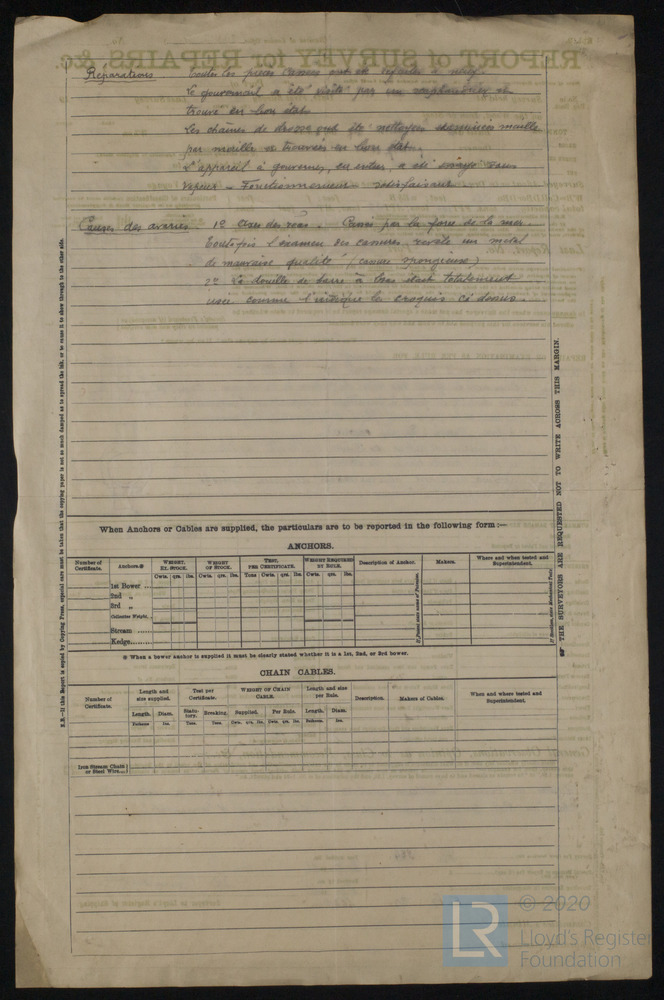 Reparations. Toutes les pièces cassées ont été
Le gouvernail a été visité par un scaphandrier et
trouvé en bon état
Les chaînes de drosse ont été nettoyées examinées maille
par maille et trouvées en bon état.
L'appareil à gouverner, en entier, a été essayé sous
vapeur - Fonctionnement satisfaisant
Causes des avaries. 1o Axes des par la force de la mer.
Toutefois l'examen des cassures révèle un métal
de mauvaise qualité (cassure spongieuse)
2o La douille de barre à bras était totalement
usée comme l'indique le croquis ci dessus.
When Anchors or Cables are supplied, the particulars are to be reported in the following form :—
ANCHORS.
Number of Certificate. Anchors.@ WEIGHT. EX. STOCK. WEIGHT OF STOCK. TEST, PER CERTIFICATE. WEIGHT REQUIRED BY RULE. Description of Anchor. Makers. Where and when tested and Superintendent.
Cwts. qrs. lbs. Cwts. qrs. lbs. Tons Cwts. qrs. lbs. Cwts. qrs. lbs.
1st Bower
2nd „
3rd „
Collective Weight.
Stream
Kedge
@ When a bower anchor is supplied it must be clearly stated whether it is a 1st, 2nd, or 3rd bower.
CHAIN CABLES.
Number of Certificate. Length and size supplied. Test per Certificate. WEIGHT OF CHAIN CABLE. Length and size per Rule. Description. Makers of Cables. When and where tested and Superintendent.
Length. Diam. Statutory. Breaking. Supplied. Per Rule. Length. Diam.
Fathoms Ins. Tons. Tons. Cwts. qrs. lbs. Cwts. qrs. lbs. Fathoms. Ins.
Iron Stream Chain or Steel Wire
N.B.—If this Report is copied by Copying Press, especial care must be taken that the copying paper is not so much damped as to spread the ink, or to cause it to show through to the other side.
THE SURVEYORS ARE REQUESTED NOT TO WRITE ACROSS THIS MARGIN.
LR
© 2020
Lloyd's Register
Foundation